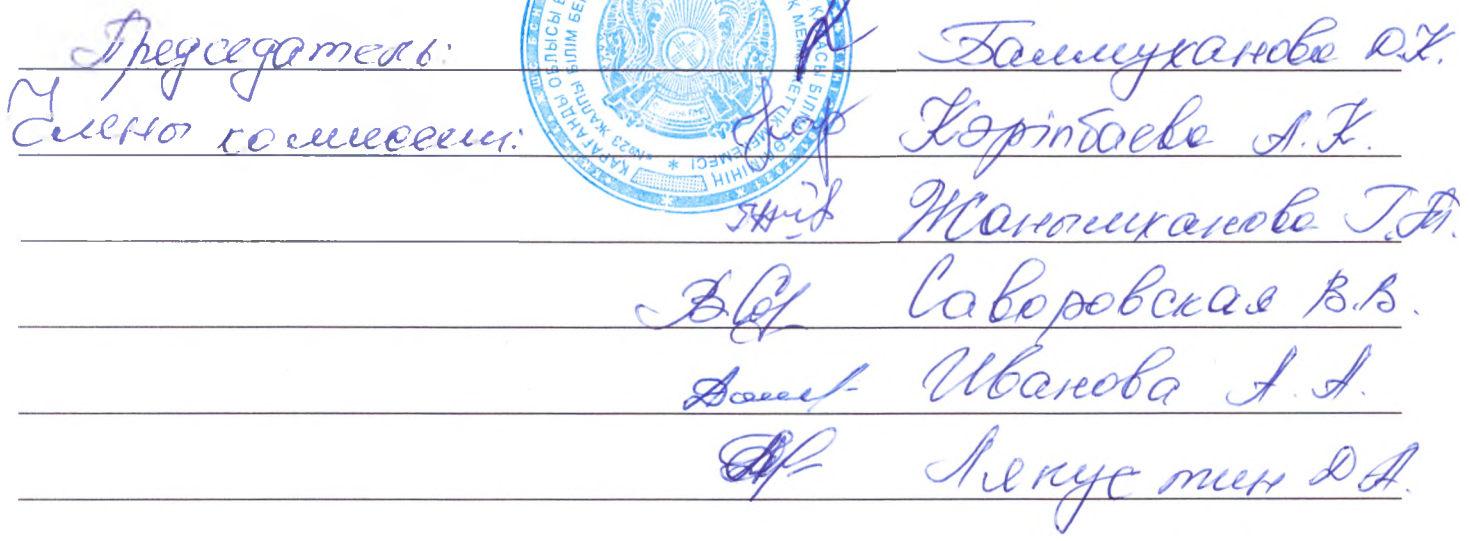 Председатель: Баймуханова Д.К.
Члены комиссии: Кәріпбаева А.К.
Жанымханова Г.Т.
Саворовская В.В.
Иванова А.А.
Лякустин Д.А.
ҚАРАҒАНДЫ ОБЛЫСЫ
№23 ЖАЛПЫ БІЛІМ